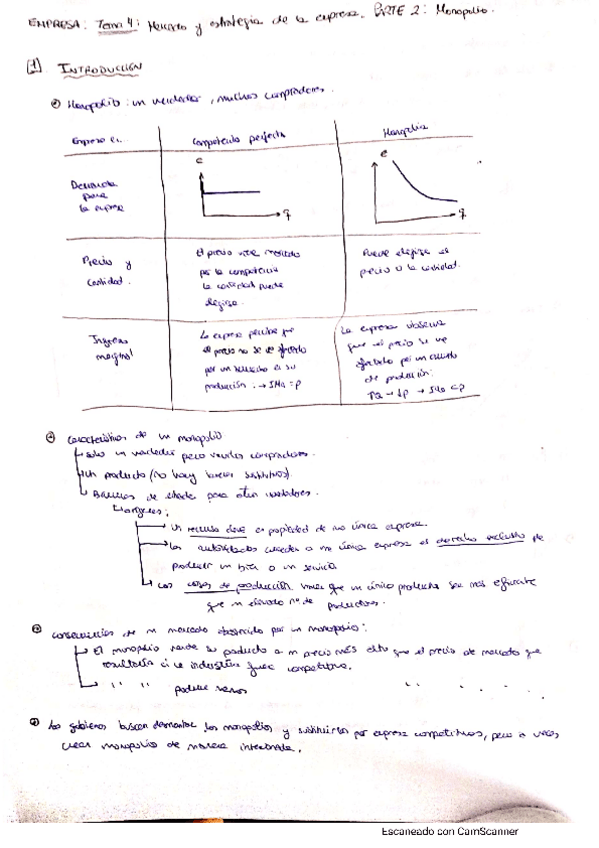 EMPRESA: Tema 4: Mercado y estrategia de la empresa. PARTE 2: Monopolio.
[1] INTRODUCCIÓN
Monopolio: un vendedor, muchos compradores.
Empresa en.. Competencia perfecta Monopolio
Demanda para la empresa
€
q
€
q
Precio y cantidad.
El precio viene marcado
por la competencia
la cantidad puede
elegirse.
Puede elegirse el
precio o la cantidad.
Ingreso marginal
La empresa percibe que
el precio no se ve afectado
por un aumento en su
producción: → IMa = p
La empresa observa
que el precio se ve
afectado por un aumento
de producción:
↑Q → ↓p → IMa < p
Características de un monopolio.
Solo un vendedor pero varios compradores.
Un producto (no hay buenos sustitutivos).
Barreras de entrada para otros vendedores.
Orígenes:
Un recurso clave es propiedad de una única empresa.
Las autoridades conceden a una única empresa el derecho exclusivo de
producir un bien o un servicio
Los costes de producción hacen que un único productor sea más eficiente
que un elevado nº de productores.
Consecuencias de un mercado abastecido por un monopolio:
El monopolio vende su producto a un precio más alto que el precio de mercado que
resultaría si la industria fuese competitiva.
" " produce menos " " " "
Los gobiernos buscan desmantelar los monopolios y sustituirlos por empresas competitivas, pero a veces,
crean monopolio de manera intencionada.
Escaneado con CamScanner